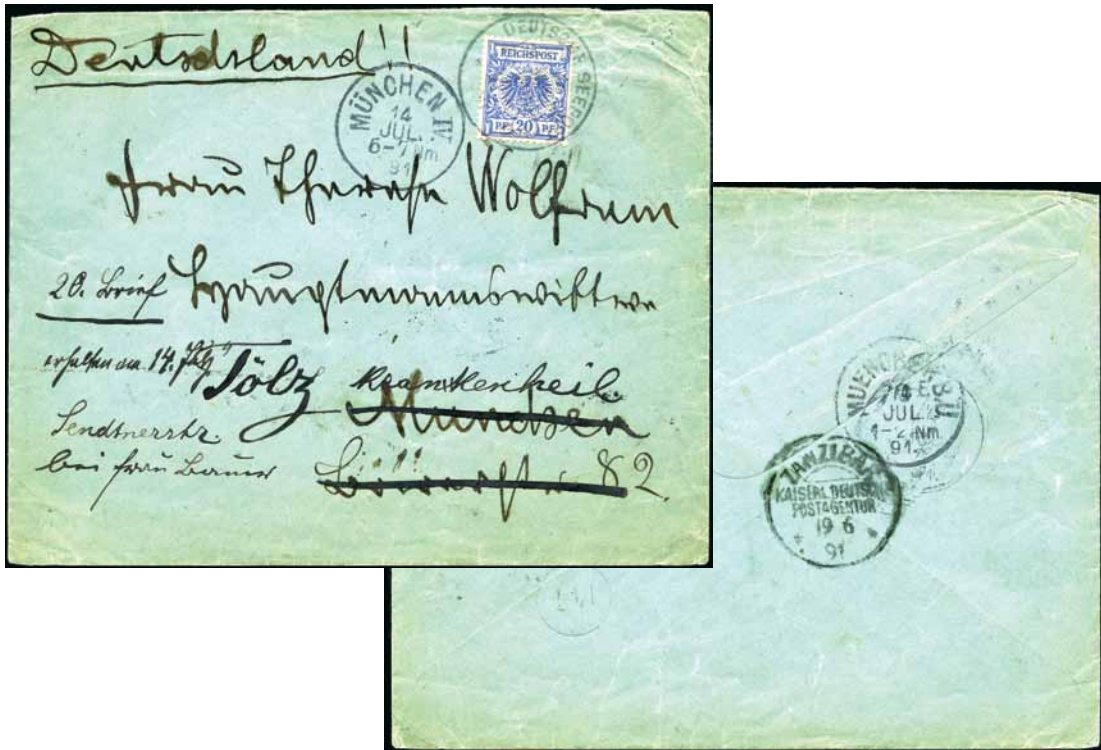 Deutschland!!
DEUTSCHE SEEP
REICHSPOST
PF 20 PF
MÜNCHEN IV
14
JUL.
6-7 Nm
91
Frau Therese Wolfram
20. Brief Hauptmannswittwe
erhalten am 14. July
Tölz Krankenheil.
München
Sendtnerstr.
bei Frau Bauer
82.
MUENCHEN
JUL.
1-2 Nm
91.
ZANZIBAR
KAISERL. DEUTSCHE
POSTAGENTUR
19 6
91